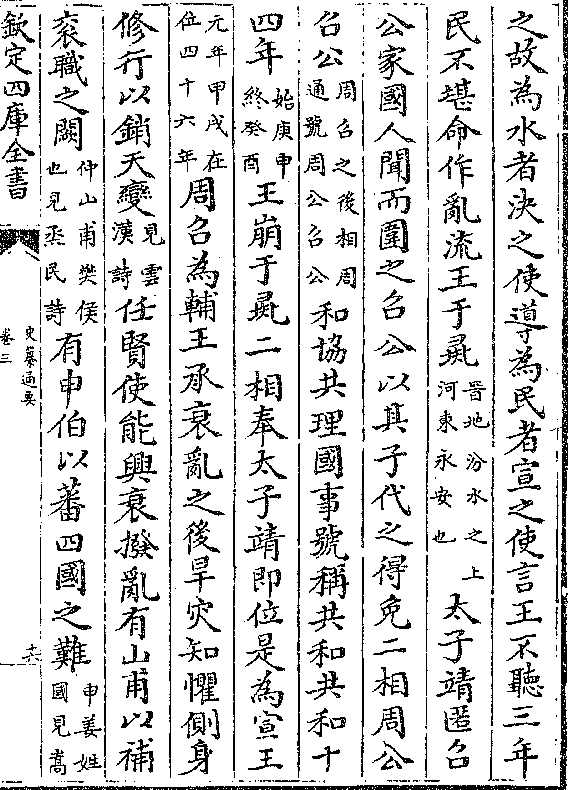 之故為水者決之使導為民者宣之使言王不聽三年
民不堪命作亂流王于彘晉地汾水之上河東永安也太子靖匿召
公家國人聞而圍之召公以其子代之得免二相周公
召公周召之後相周通號周公召公和協共理國事號稱共和共和十
四年始庚申終癸酉王崩于彘二相奉太子靖即位是為宣王
元年甲戌在位四十六年周召為輔王承衰亂之後旱災知懼側身
修行以銷天變見雲漢詩任賢使能興衰撥亂有山甫以補
袞職之闕仲山甫樊侯也見烝民詩有申伯以蕃四國之難申姜姓國見嵩
欽定四庫全書
史纂通要
卷三
十六